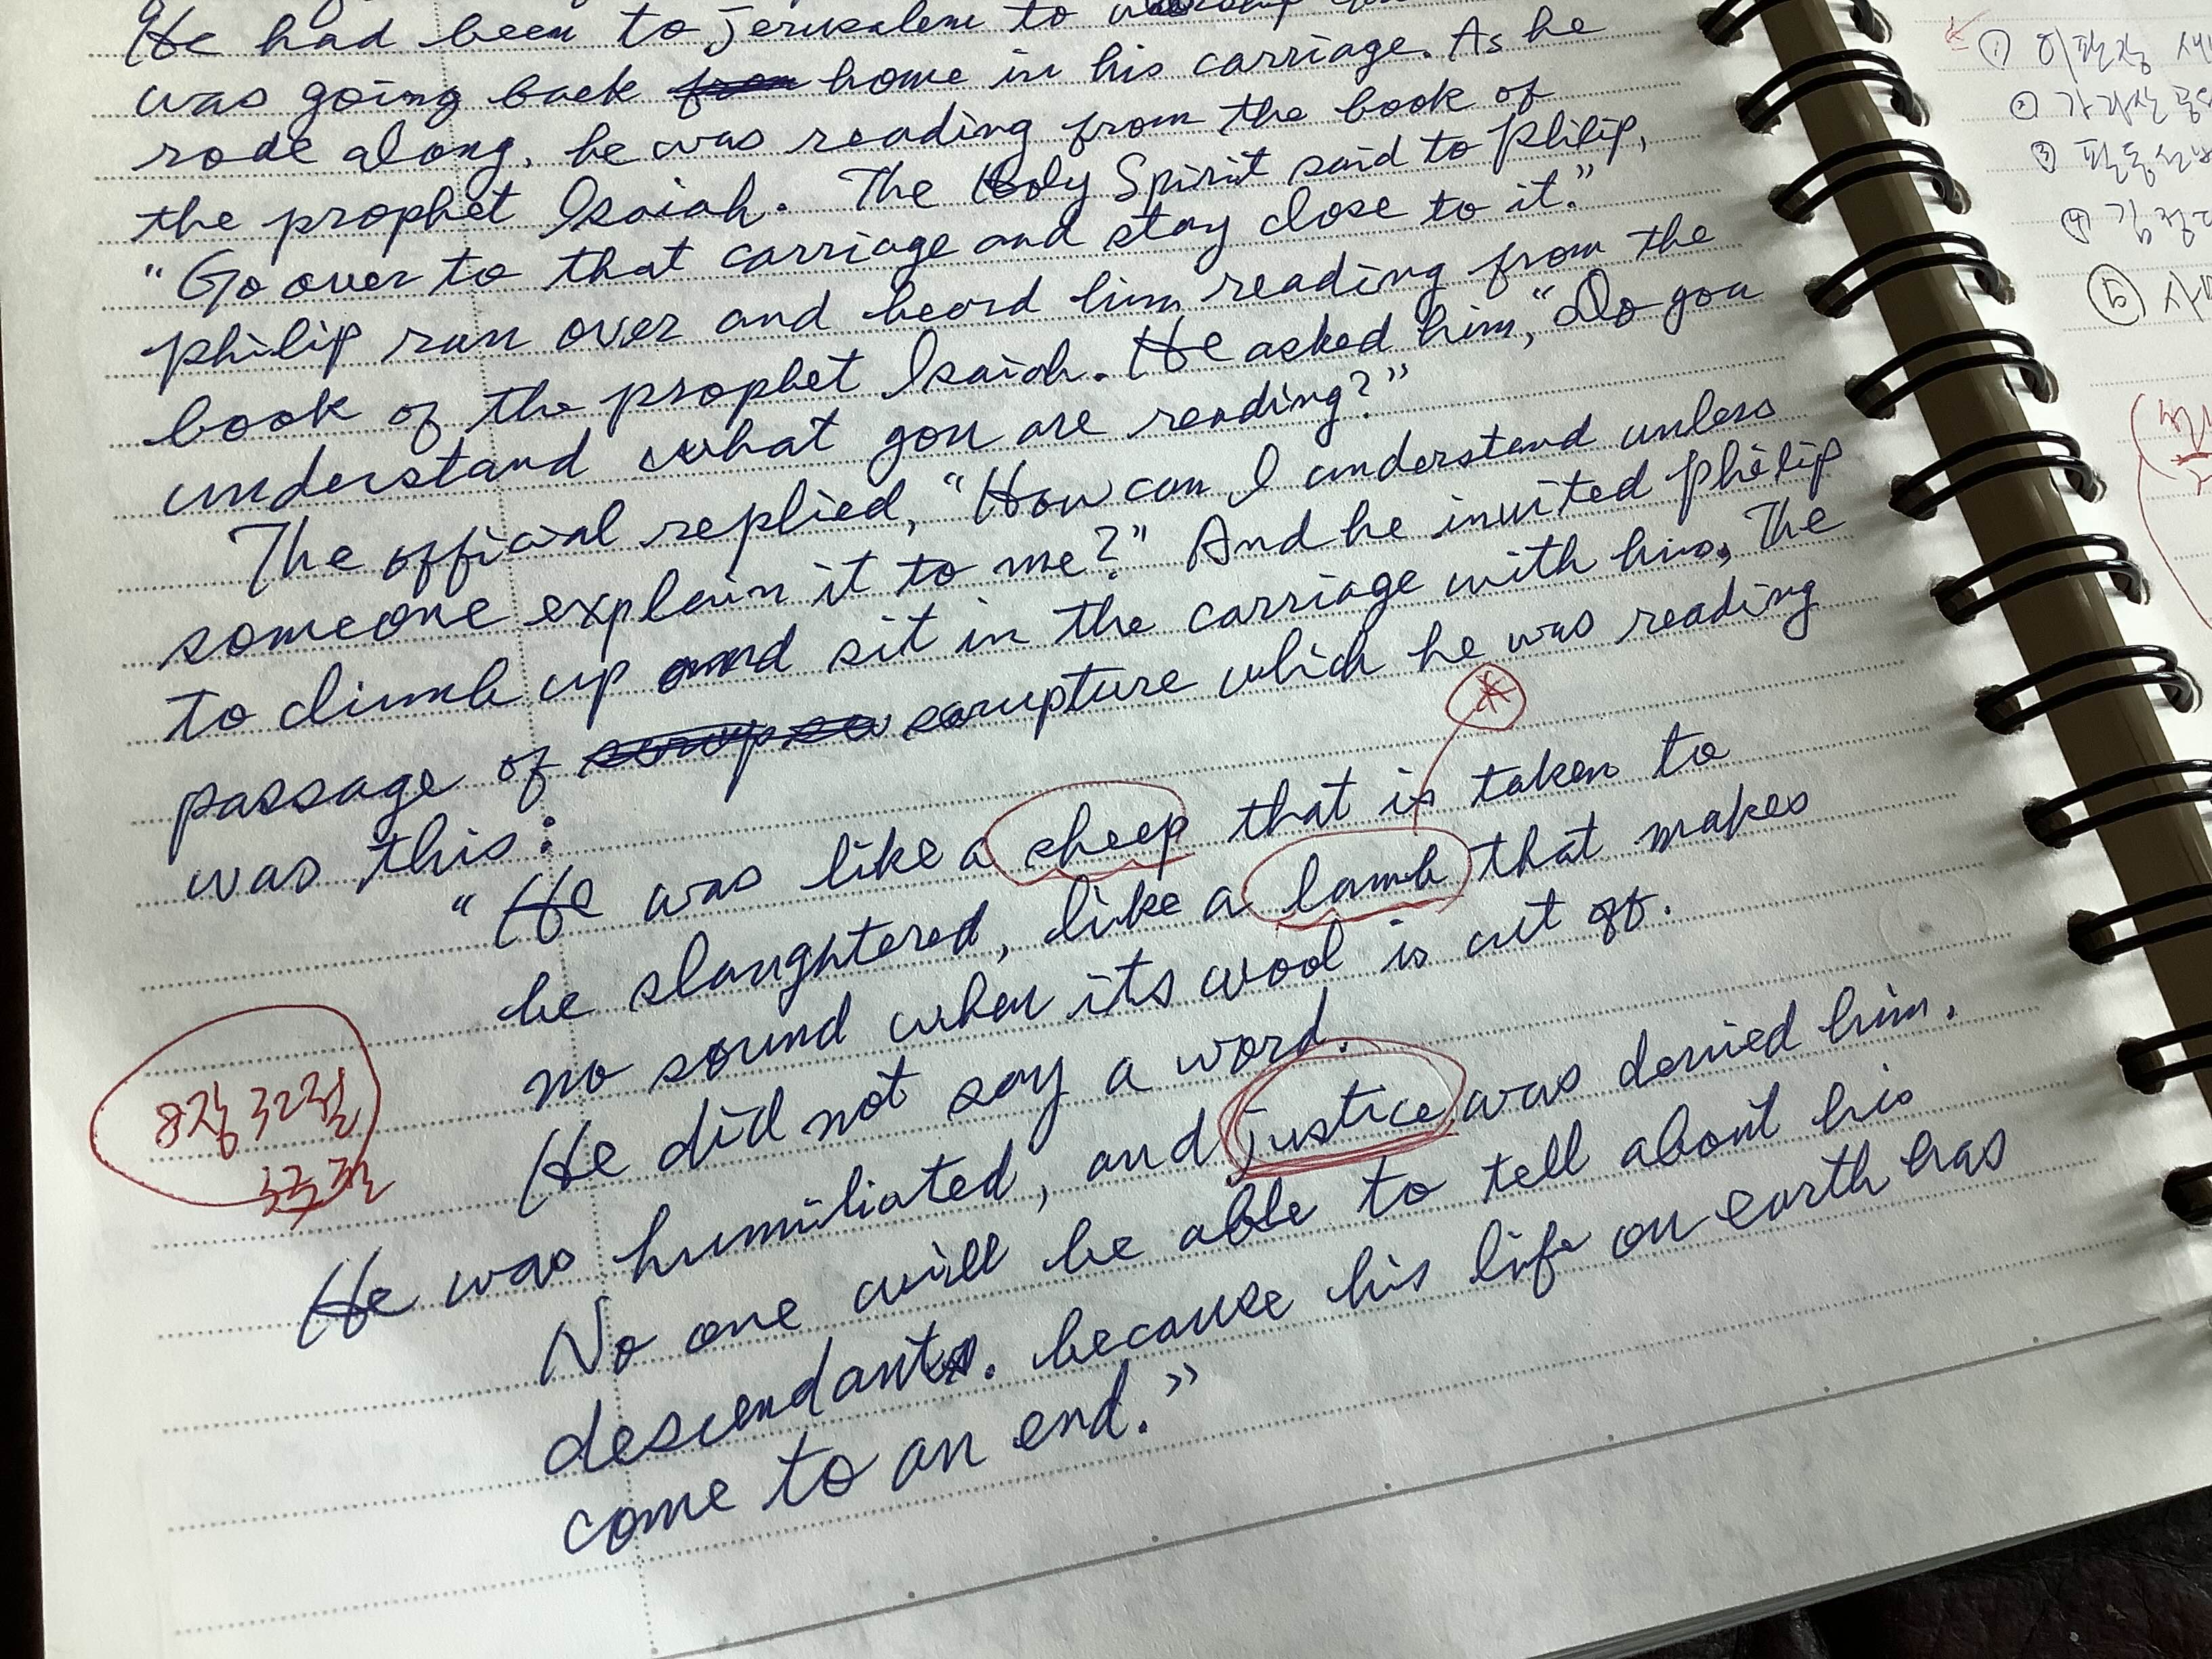 He had been to Jerusalem to
was going back home in his carriage. As he
rode along, he was reading from the book of
the prophet Isaiah. The Holy Spirit said to Philip,
"Go over to that carriage and stay close to it."
Philip ran over and heard him reading from the
book of the prophet Isaiah. He asked him, "Do you
understand what you are reading?"
The official replied, "How can I understand unless
someone explain it to me?" And he invited Philip
to climb up and sit in the carriage with him. The
passage of scrupture which he was reading
was this:
"He was like a sheep that is taken to
be slaughtered, like a lamb that makes
no sound when its wool is cut off.
He did not say a word.
He was humiliated, and justice was denied him.
No one will be able to tell about his
descendants. because his life on earth has
come to an end."
8장 32절
33절
①
②
③
④
⑤